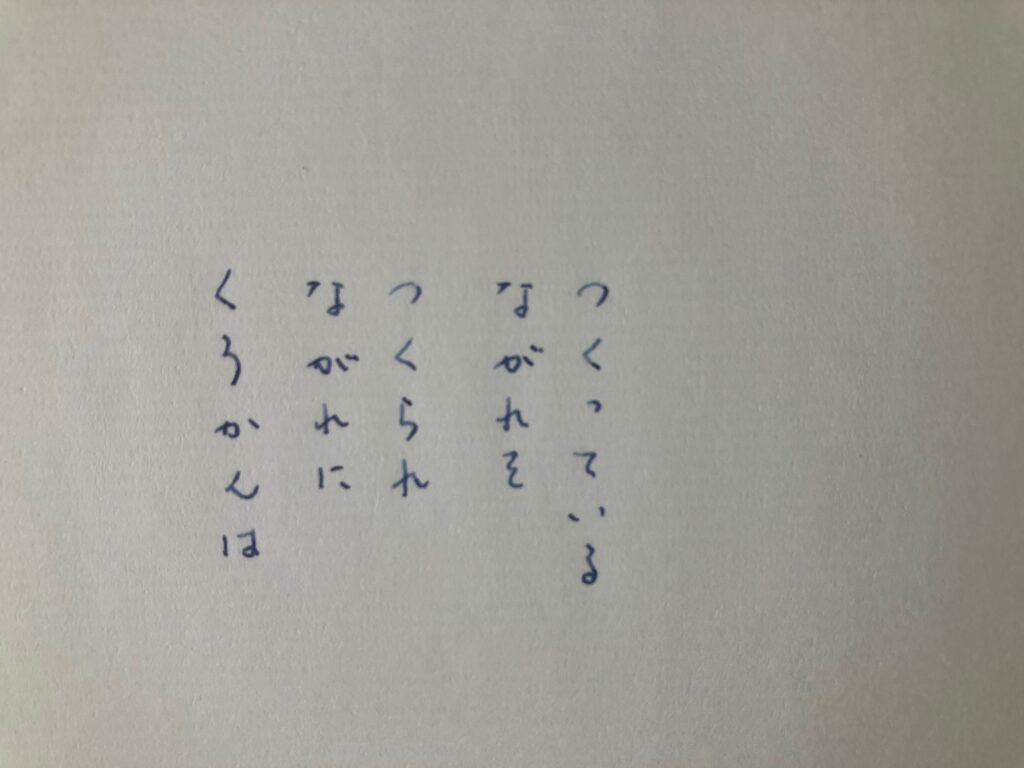 くうかんは
ながれに
つくられ
ながれを
つくっている